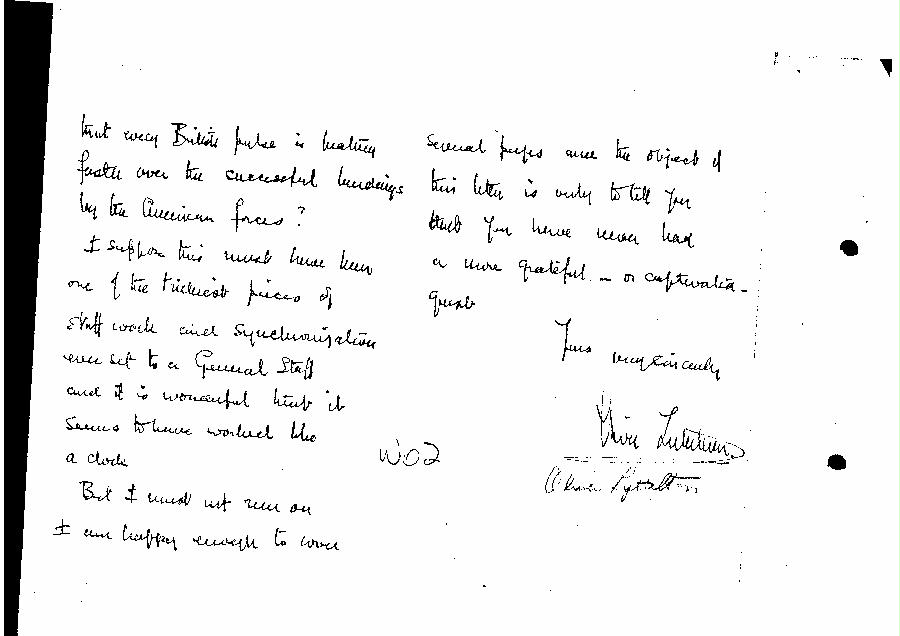 that every British pulse is beating
faster over the successful landings
by the American forces?
I suppose this must have been
one of the trickiest pieces of
staff work and synchronization
ever set to a General Staff
and it is wonderful that it
seems to have worked like
a clock
But I must not run on
I am happy enough to cover
several pages and the object of
this letter is only to tell you
that you have never had
a more grateful — or captivated —
guest
Yours very sincerely
Oliver Lyttelton
Oliver Lyttelton
W02